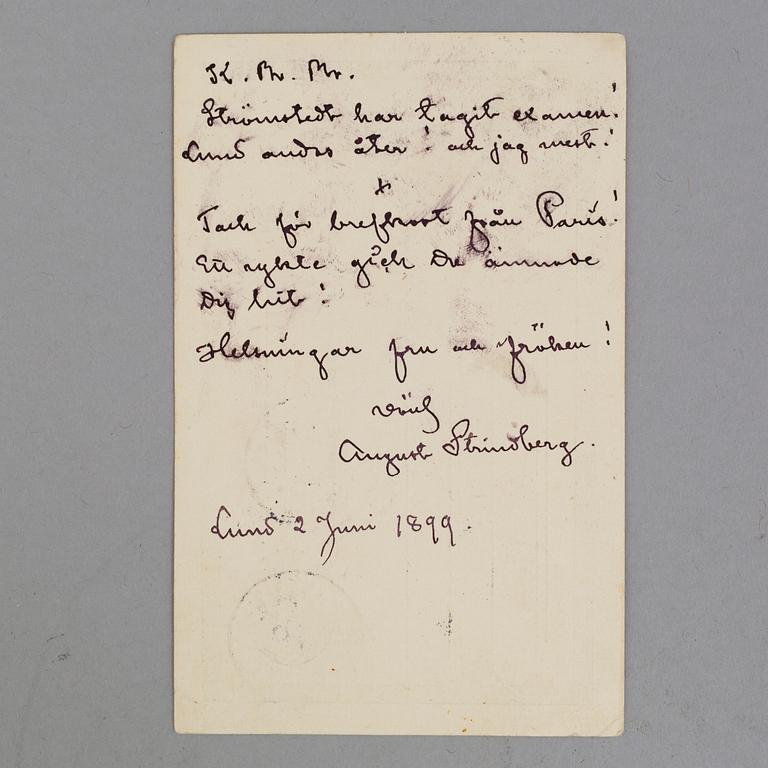 K. Br. Br.
Strömstedt har tagit examen!
Lund andas åter! och jag mest!
x
Tack för brefkort från Paris!
Ett rykte gick Du ämnade
Dig hit!
Helsningar fru och fröken!
Vöid
August Strindberg.
Lund 2 Juni 1899.